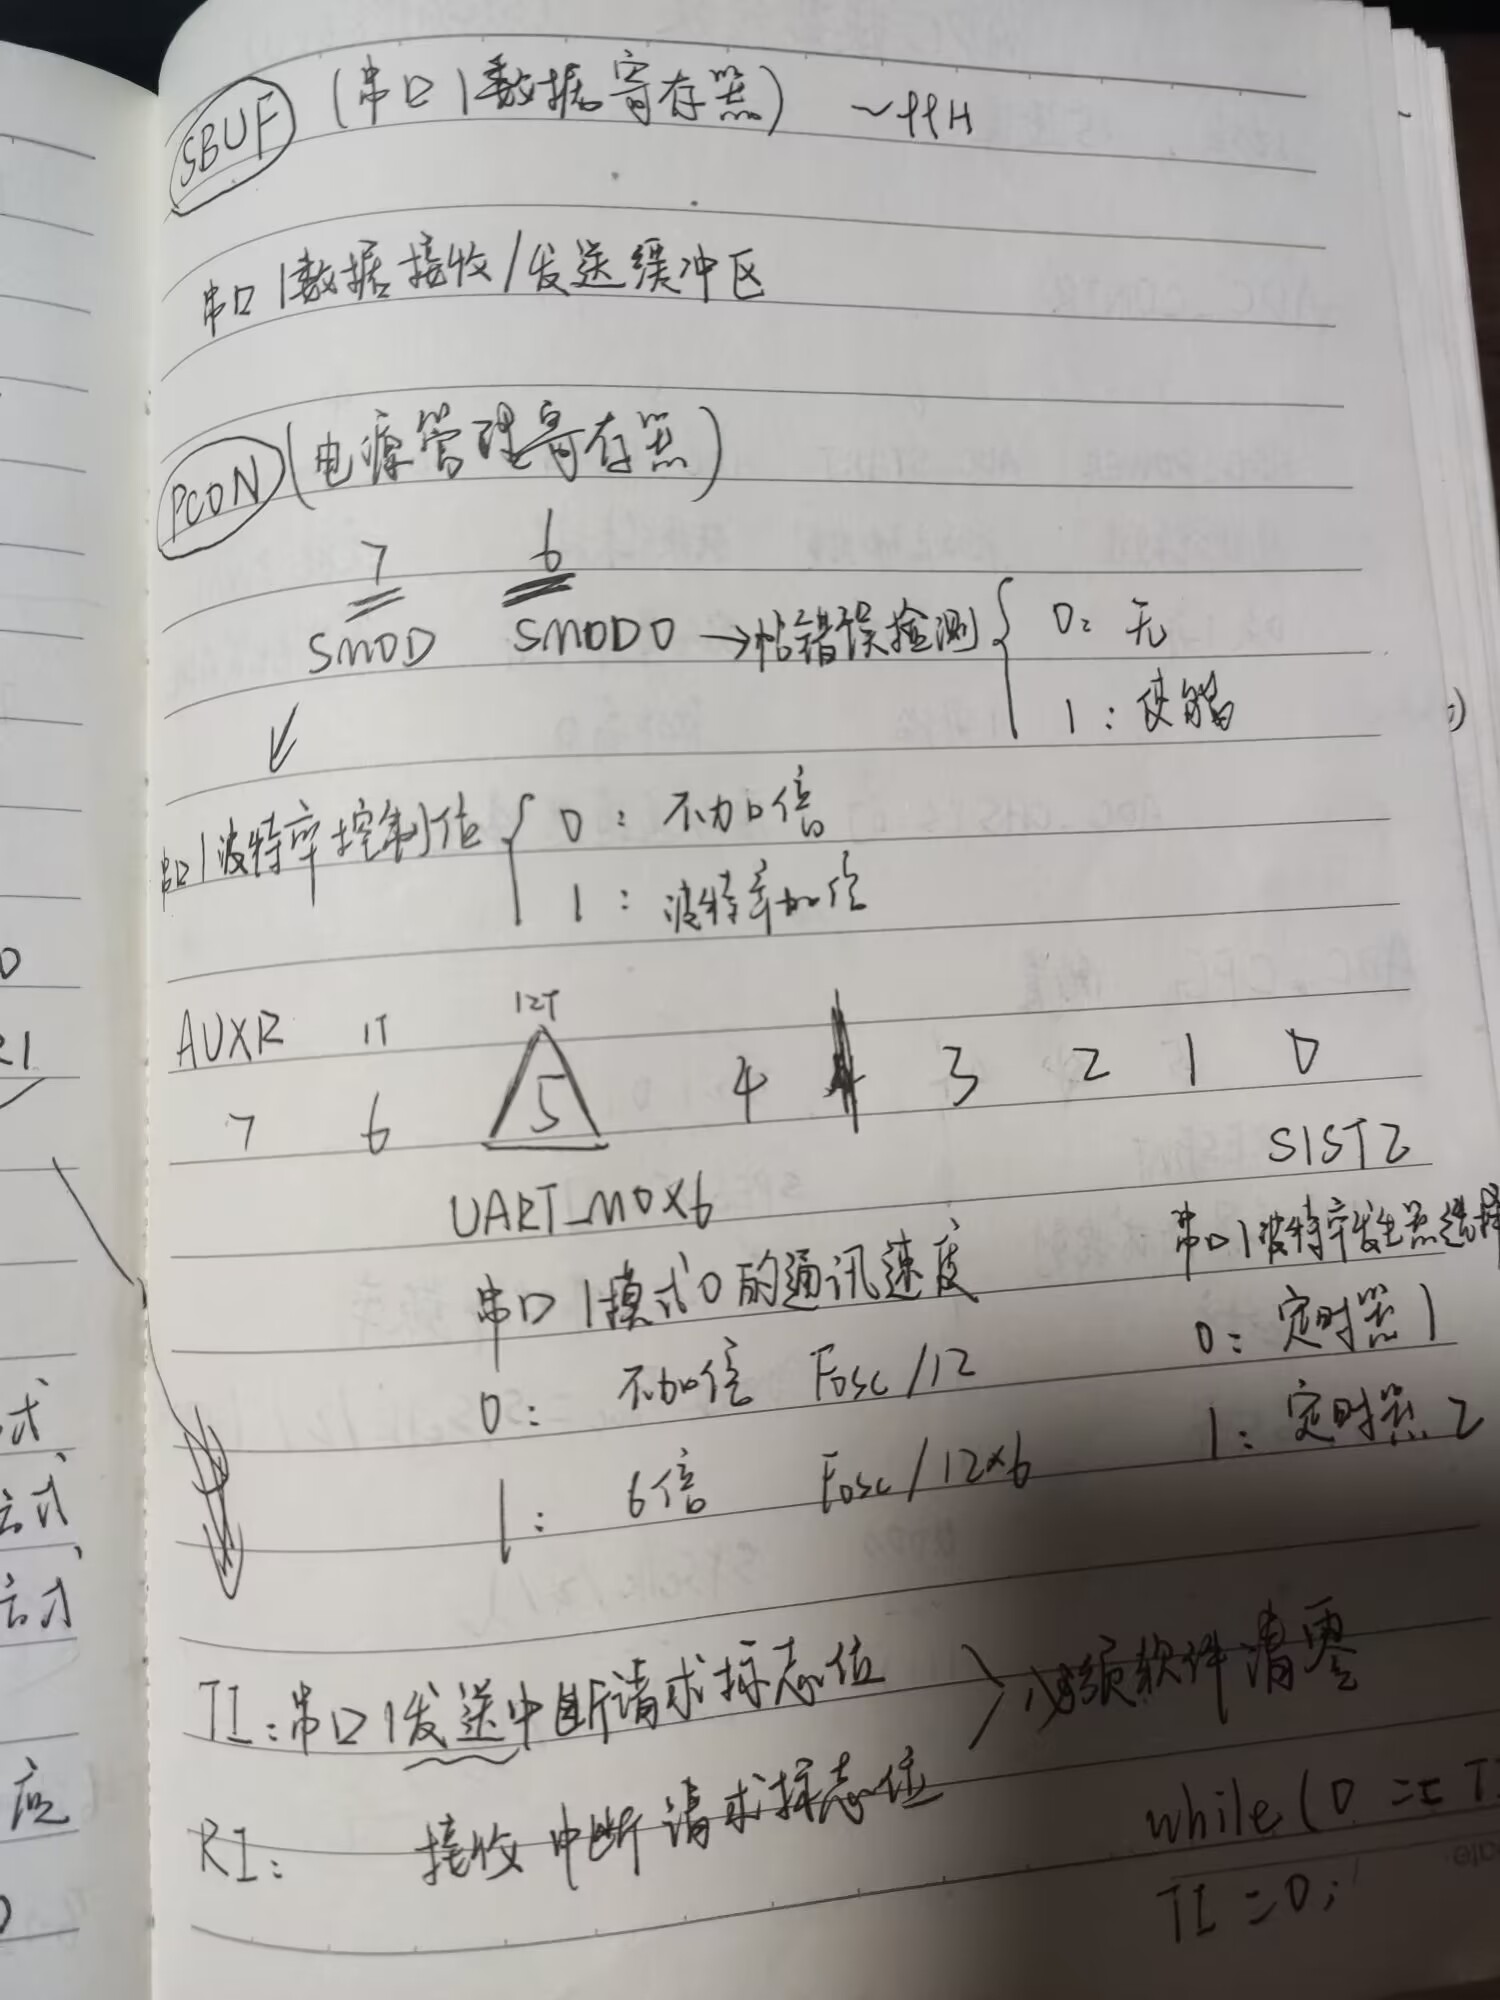 SBUF (串口1数据寄存器) ~ffH
串口1数据接收/发送缓冲区
PCON (电源管理寄存器)
7 6
SMOD SMOD0 → 帧错误检测 { 0: 无
1: 使能
串口1波特率控制位 { 0: 不加倍
1: 波特率加倍
AUXR 1T 12T
7 6 5 4 3 2 1 0
UART_M0X6 S1ST2
串口1模式0的通讯速度 串口1波特率发生器选择
0: 不加倍 Fosc/12 0: 定时器1
1: 6倍 Fosc/12×6 1: 定时器2
TI: 串口1发送中断请求标志位 必须软件清零
RI: 接收中断请求标志位
while(0 == T
TI=0;
0
RI
式
式
式
应
0